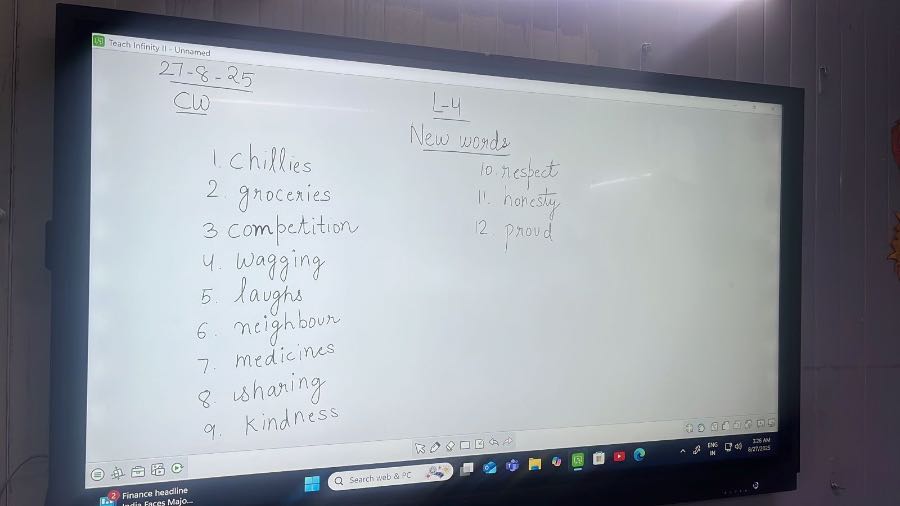 Teach Infinity II - Unnamed
27-8-25
CW
L-4
New words
1. chillies
2. groceries
3 competition
4. wagging
5. laughs
6. neighbour
7. medicines
8. sharing
9. kindness
10. respect
11. honesty
12. proud
Search web & PC
ENG
IN
3:26 AM
8/27/2025
2
Finance headline
India Faces Majo...